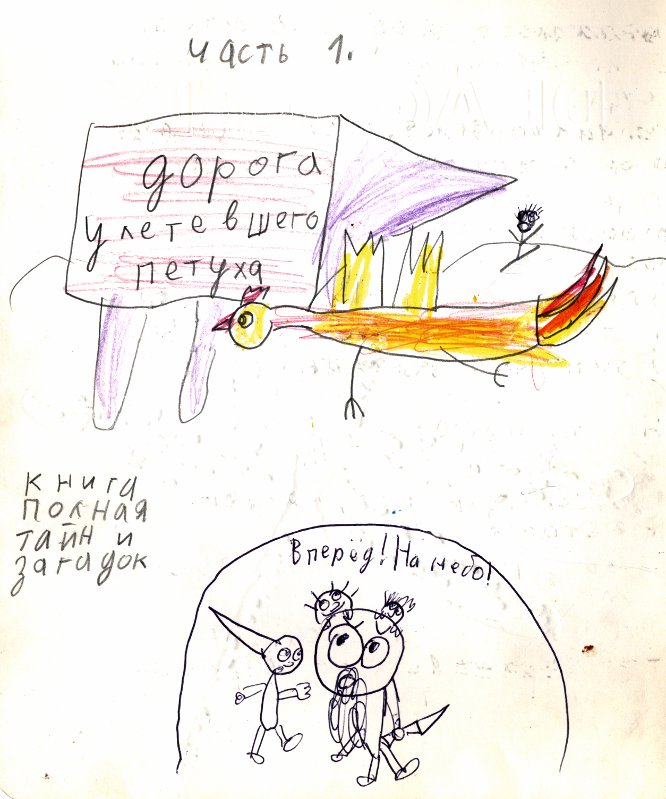 часть 1.
дорога
улетевшего
петуха
книга
полная
тайн и
загадок
Вперёд! На небо!